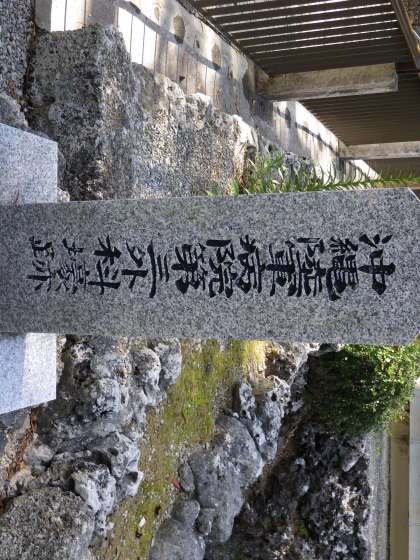 沖縄陸軍病院第三外科壕跡